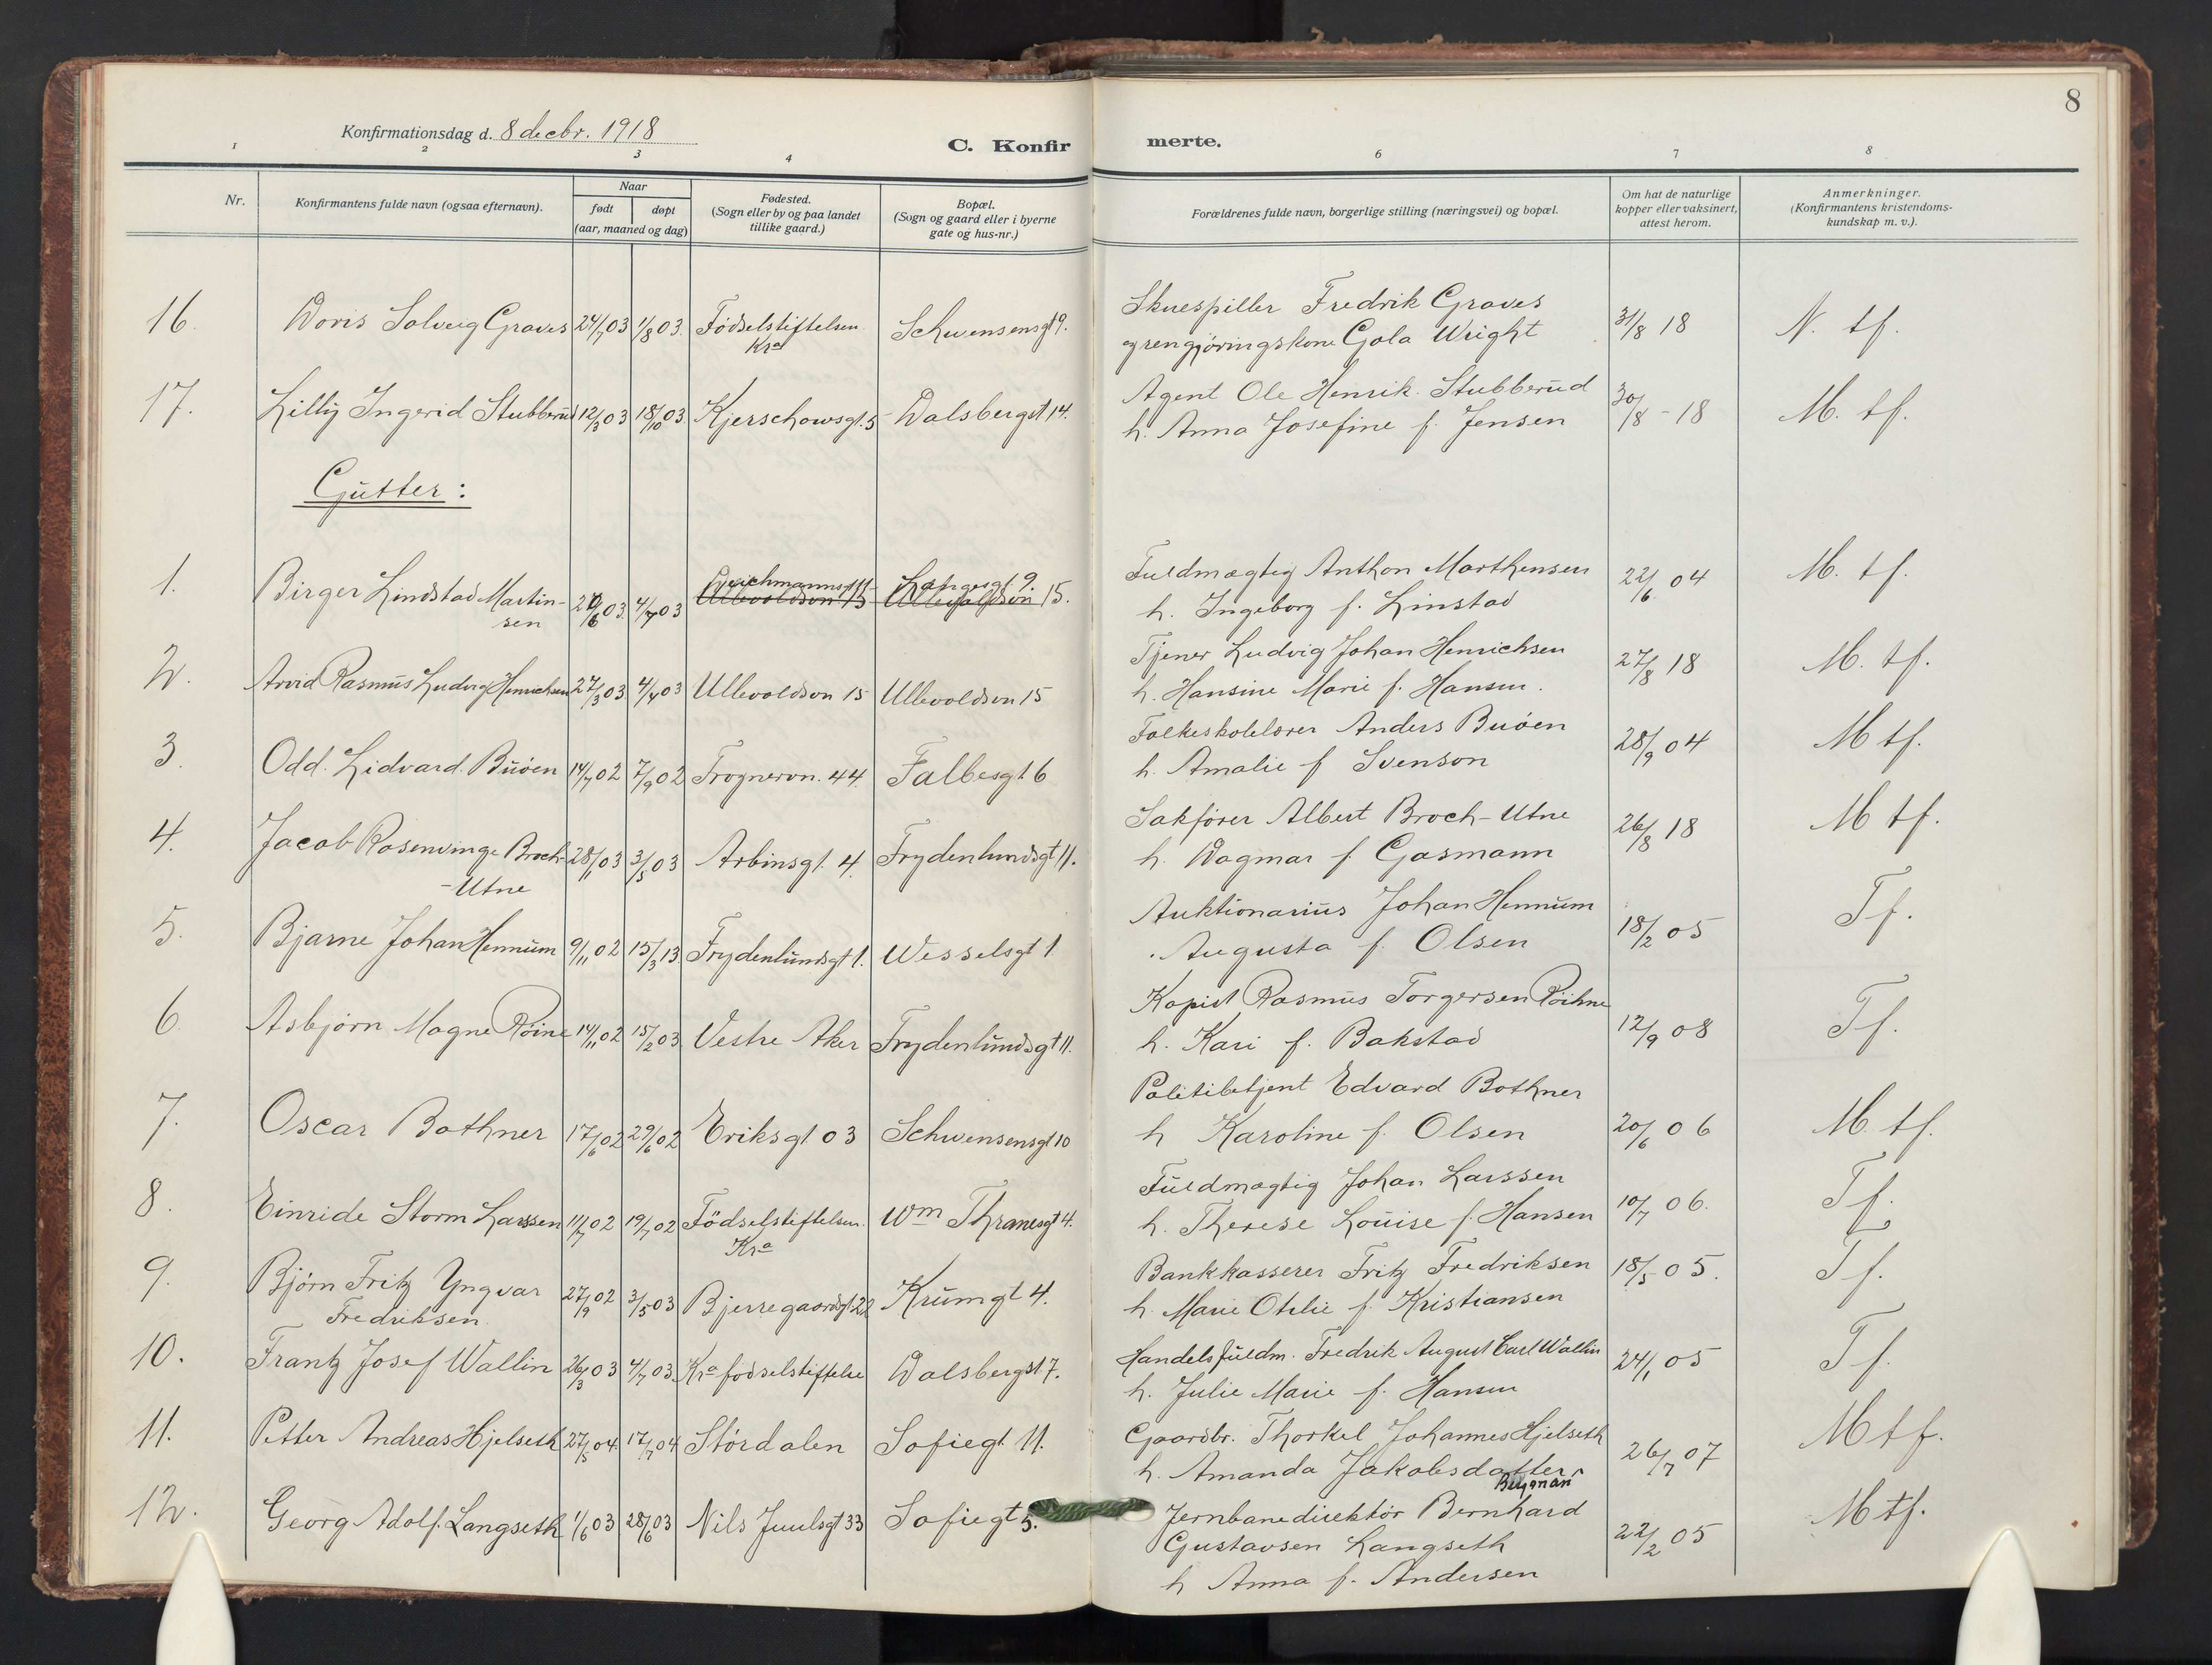 8
Konfirmationsdag d. 8 decbr. 1918
C. Konfir merte.
1 2 3 4 6 7 8
Nr.
Konfirmantens fulde navn (ogsaa efternavn).
Naar
født døpt
(aar, maaned og dag)
Fødested.
(Sogn eller by og paa landet
tillike gaard.)
Bopæl.
(Sogn og gaard eller i byerne
gate og hus-nr.)
Forældrenes fulde navn, borgerlige stilling (næringsvei) og bopæl.
Om hat de naturlige
kopper eller vaksinert,
attest herom.
Anmerkninger.
(Konfirmantens kristendoms-
kundskap m. v.).
16. Doris Solveig Graves 24/7 03 1/8 03. Födselstiftelsen Schwensensgt 9. Skuespiller Fredrik Graves 31/8 18 N. tf.
Kra og rengjöringskone Gola Wright
17. Lilly Ingerid Stubberud 12/3 03 18/10 03. Kjerschowsgt. 5 Dalsbergst 14. Agent Ole Henrik Stubberud 30/8 - 18 M. tf.
h. Anna Josefine f. Jensen
Gutter :
1. Birger Lindstad Martin- 4/7 03 Deichmannsgt 11 Langesgt. 9. Fuldmægtig Anthon Marthensen 22/6 04 M. tf.
sen Ullevoldsvn 15 Ullevoldsvn 15. h. Ingeborg f. Linstad
2. Arvid Rasmus Ludvig Henrichsen 27/3 03 4/4 03 Ullevoldsvn 15 Ullevoldsvn 15 Tjener Ludvig Johan Henrichsen 27/8 18 M. tf.
h. Hansine Marie f. Hansen.
3. Odd. Lidvard. Buöen 14/7 02 7/9 02 Frognervn. 44. Falbesgt 6 Folkeskolelærer Anders Buöen 28/9 04 M tf.
h. Amalie f Svenson
4. Jacob Rosenvinge Broch- 28/1 03 3/5 03 Arbinsgt. 4. Frydenlundsgt 11. Sakförer Albert Broch-Utne 26/8 18 M tf.
-Utne h. Dagmar f. Gasmann
5. Bjarne Johan Hennum 9/11 02 15/3 13. Frydenlundsgt 1. Wesselsgt 1 Auktionarius Johan Hennum 18/2 05 Tf.
Augusta f. Olsen
6. Asbjörn Magne Röine 14/11 02 15/2 03 Vestre Aker Frydenlundsgt 11. Kopist Rasmus Torgersen Röihne 12/9 08 Tf.
h. Kari f. Bakstad
7. Oscar Bothner 17/6 02 29/6 02 Eriksgt 03 Schwensensgt 10 Politibetjent Edvard Bothner 20/6 06 M. tf.
h Karoline f. Olsen
8. Einride Storm Larssen 11/7 02 19/7 02 Födselstiftelsen. Wm Thranesgt 4. Fuldmægtig Johan Larssen 10/7 06. Tf.
Kra h. Therese Louise f. Hansen
9. Björn Fritz Yngvar 27/9 02 3/5 03 Bjerregaardsgt 22 Krumgt 4. Bankkasserer Fritz Fredriksen 18/5 05. Tf.
Fredriksen. h. Marie Otilie f. Kristiansen
10. Frantz Josef Wallin 26/3 03 4/7 03. Kra födselstiftelse Dalsbergst 7. Handelsfuldm. Fredrik August Carl Wallin 24/1 05 Tf.
h. Julie Marie f. Hansen
11. Petter Andreas Hjelseth 27/5 04. 17/7 04 Stördalen Sofiegt. 11. Gaardbr. Thorkel Johannes Hjelseth 26/7 07 M tf.
h. Amanda Jakobsdatter
12. Georg Adolf. Langseth 1/6 03 28/6 03 Nils Juulsgt 33 Sofiegt 5. Jernbanedirektör Bernhard 22/2 05 M tf.
Gustavsen Langseth
h Anna f. Andersen